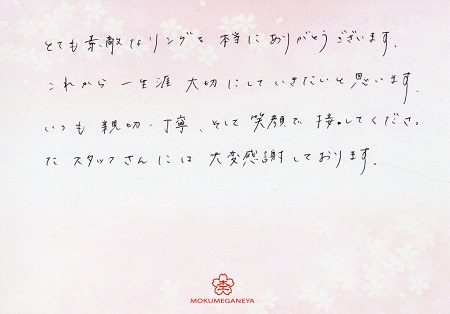 とても素敵なリングを本当にありがとうございます。
これから一生涯大切にしていきたいと思います。
いつも親切・丁寧、そして笑顔で、接してくださっ
たスタッフさんには大変感謝しております。
MOKUMEGANEYA